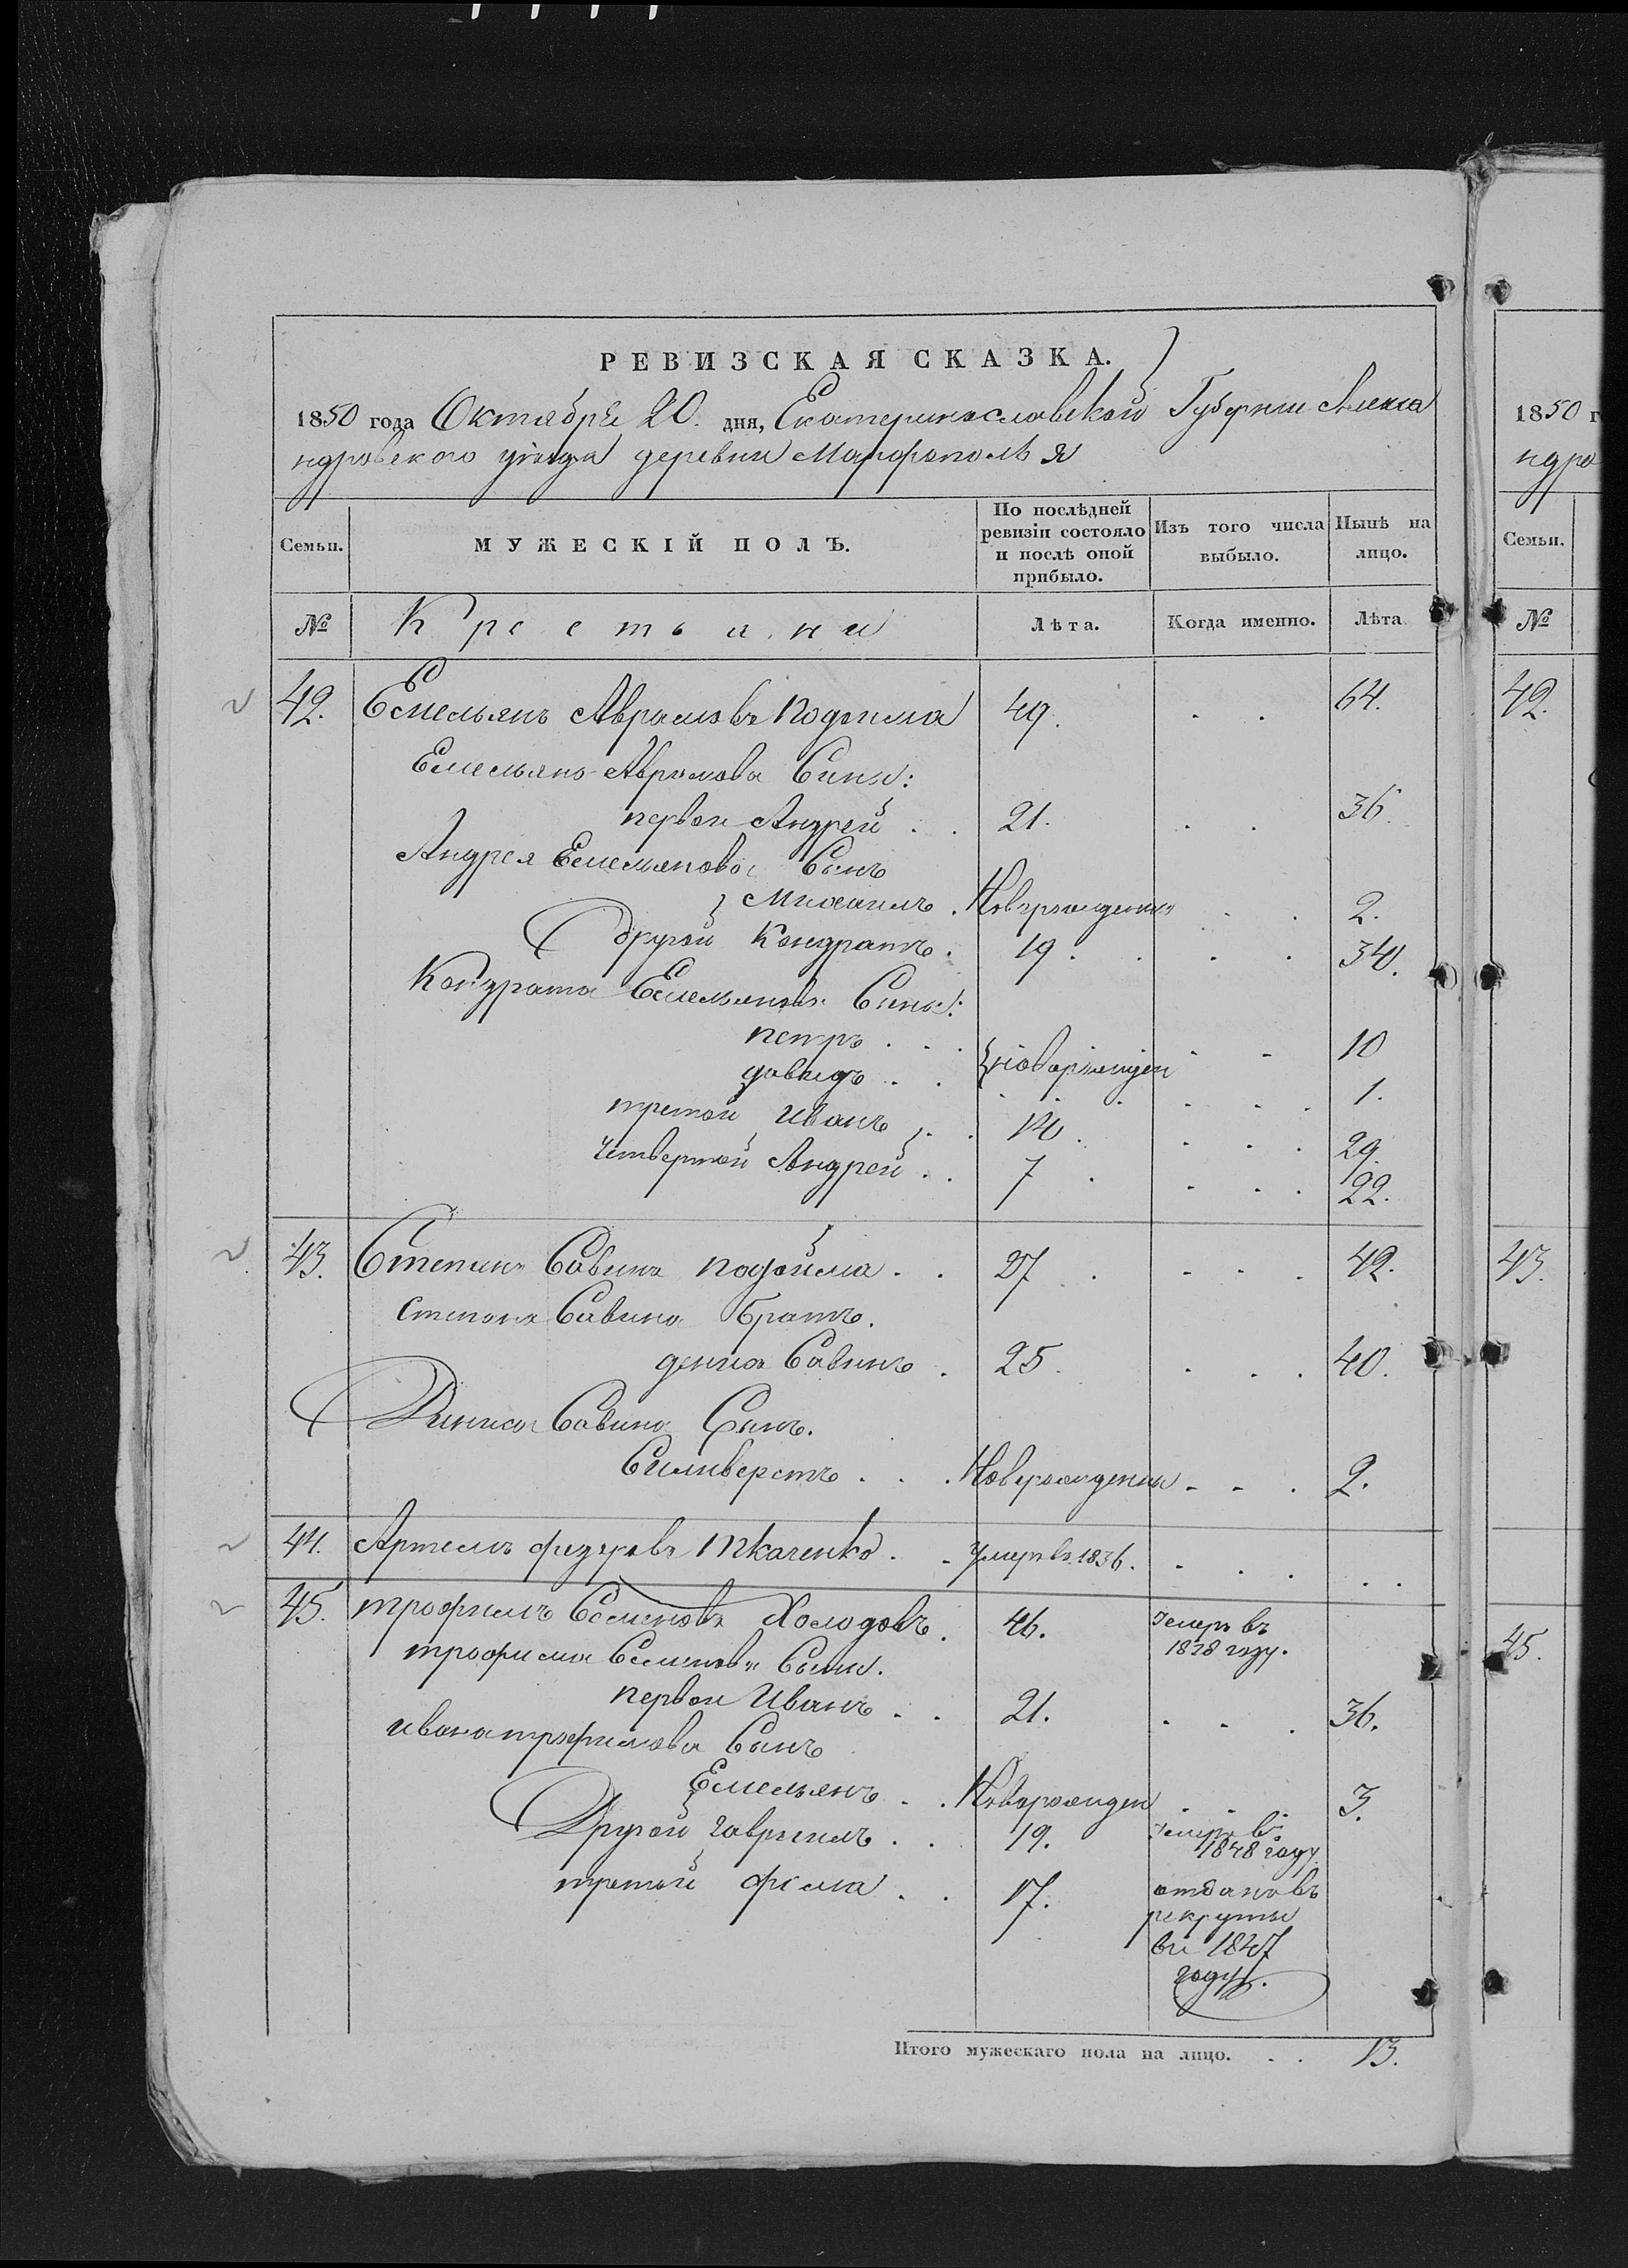 РЕВИЗСКАЯ СКАЗКА.
1850 года Октября 20. дня, Екатеринославской Губернии Алекса
ндровского уезда деревни Марфополя
Семьи. МУЖЕСКІЙ ПОЛЪ. По послѣдней ревизіи состояло и послѣ оной прибыло. Изъ того числа выбыло. Нынѣ на лицо.
№ Крестьяни Лѣта. Когда именно. Лѣта
42. Емельянъ Аврамовъ Подоима 49. 64.
Емельяна Аврамова Сины:
первой Андрей 21. 36.
Андрея Емельянова Сынъ
Михаилъ. Новорожденни 2.
Другой Кондратъ. 19. 34.
Кондрата Емельянова Сины:
петръ 10
давидъ новорожден 1.
третой Иванъ 14. 29.
четвертой Андрей 7 22.
43. Степанъ Савинъ подойма 27 42.
Степана Савина братъ.
дениса Савинъ 25. 40.
Дениса Савина Сынъ.
Силиверстъ Новорожденни 2.
44. Артемъ Ткаченко умеръ въ 1836.
45. трофимъ Семеновъ Холодовъ. 46. умеръ въ
1828 году.
трофима Семенова Сыни.
первой Иванъ 21. 36.
ивана трофимова Сынъ
Емельянъ Новорожден 3.
Другой гаврыилъ 19. умеръ въ
1848 году
третой фома 17. отданъ въ
рекруты
ви 1847
году.
Итого мужескаго пола на лицо. 13.
1850 г
ндро
Семьи.
№
42.
43.
45.